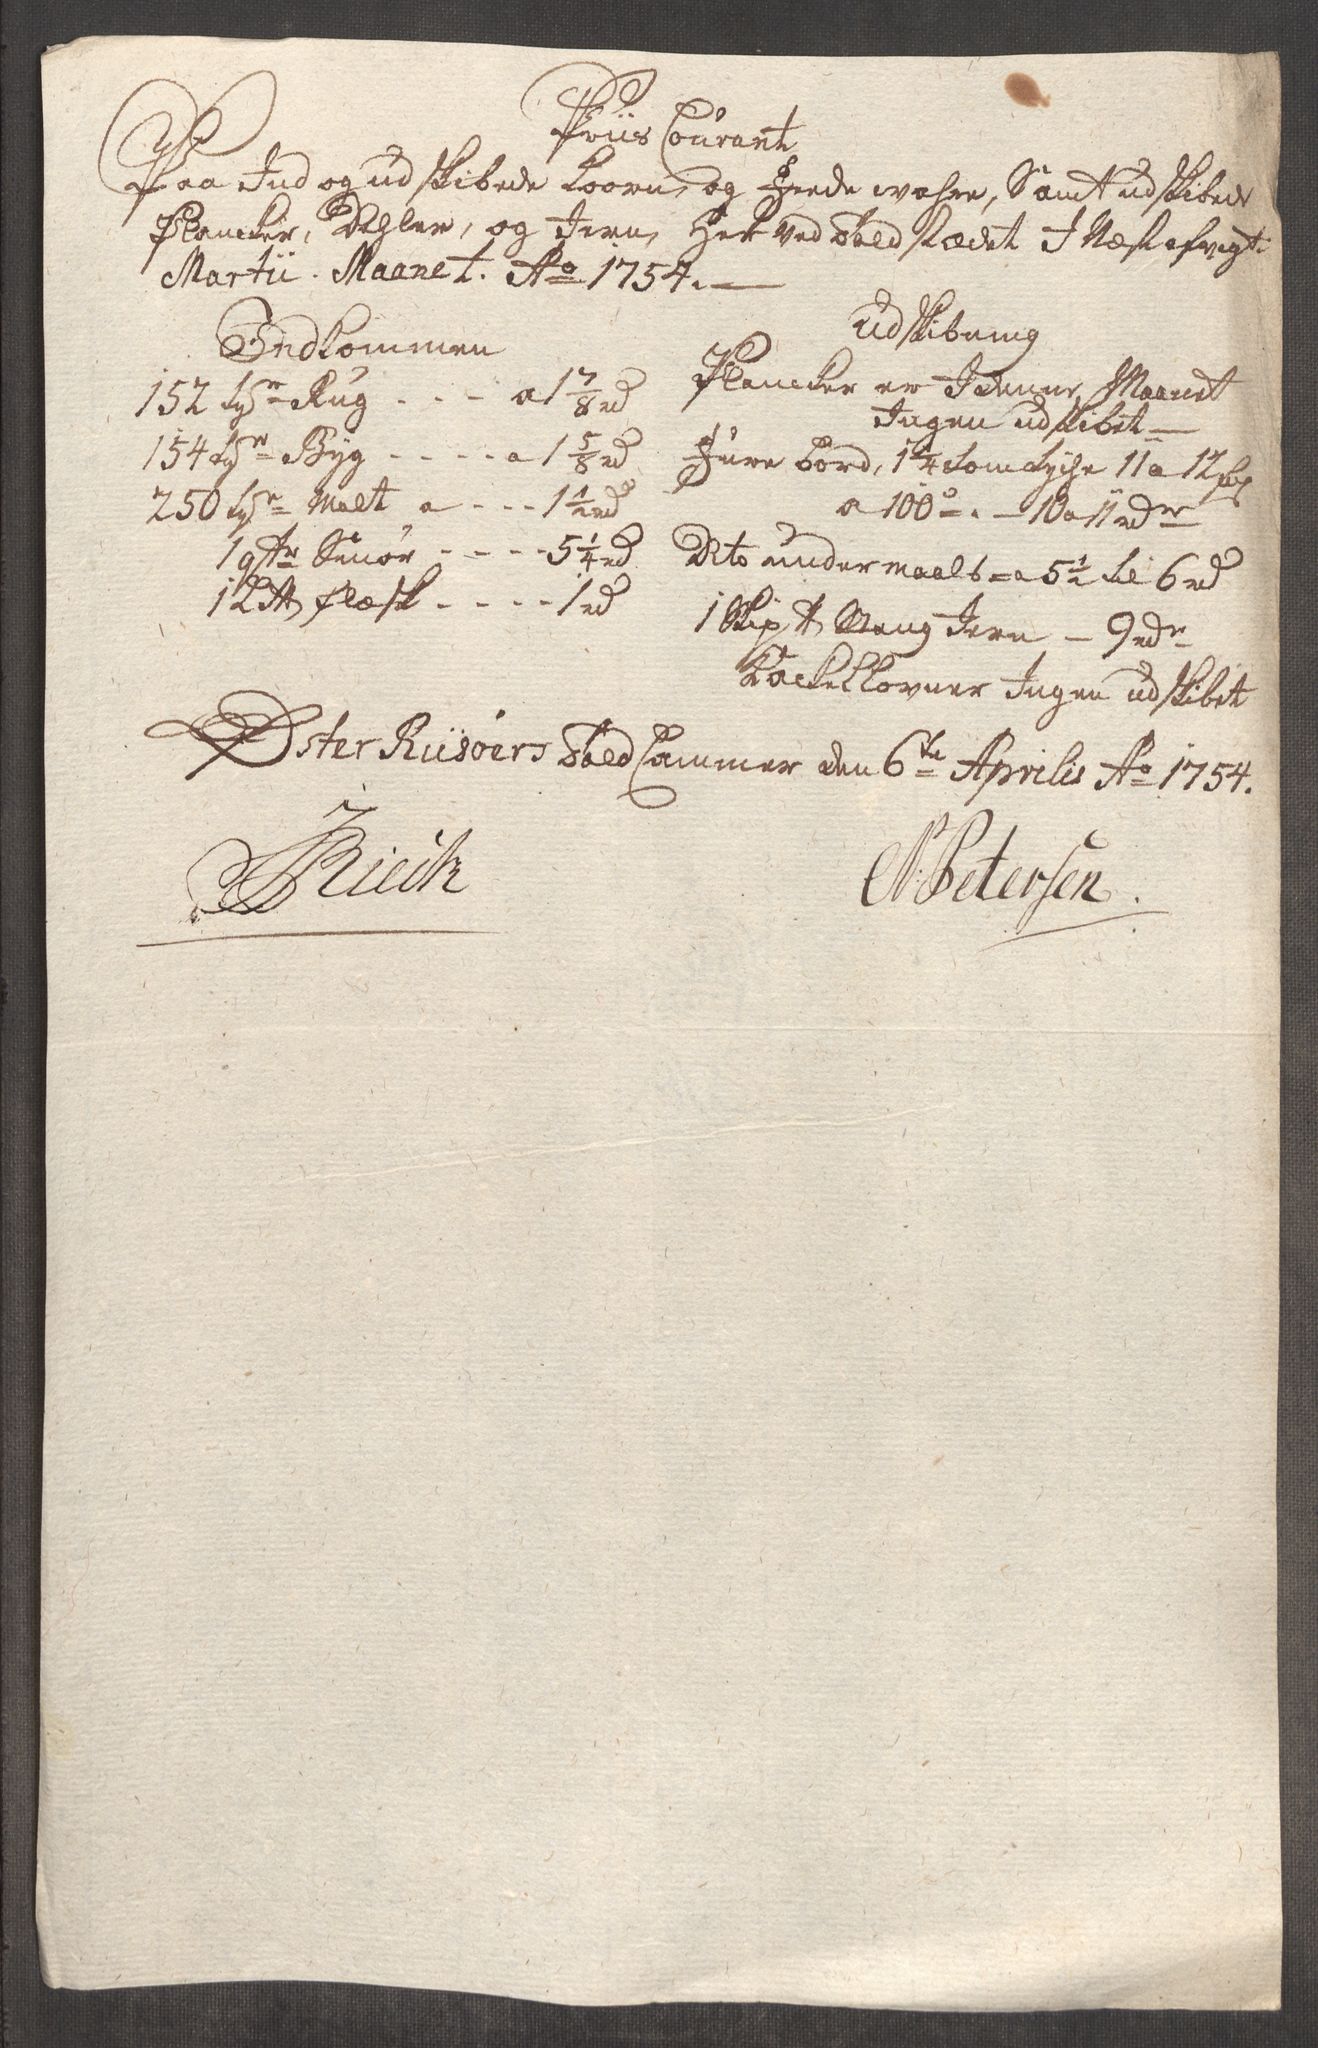 Priis Courant
Paa Ind og udskibede Koorn, og Feede wahre, Samt udskibede
Plancker, Dehler, og Jern, Her ved Told Stædet I Næst afvigt
Martii. Maanet. Ao 1754.
Indkommen
152 tdr Rug - - - a 1 7/8 rd
154 tdr Byg - - - - a 1 5/8 rd
250 tdr Malt a - - - 1 1/2 rd
1 qtr Smør - - - - 5 1/4 rd
1 L℔ flæsk - - - - 1 rd
Udskibning
Plancker er denne Maanet
Ingen udskibet
Fure bord, 1 1/4 tom tyche 11 a 12 fod
a 100de. - 10 a 11 rdr
Dito under maals - a 5 1/2 til 6 rd
1 Skip ℔ Stang Jern - 9 rdr
Kackelovner Ingen udskibet
Øster Riisöers Told Cammer den 6te Aprilis Ao 1754.
Rieck
N: Petersen.